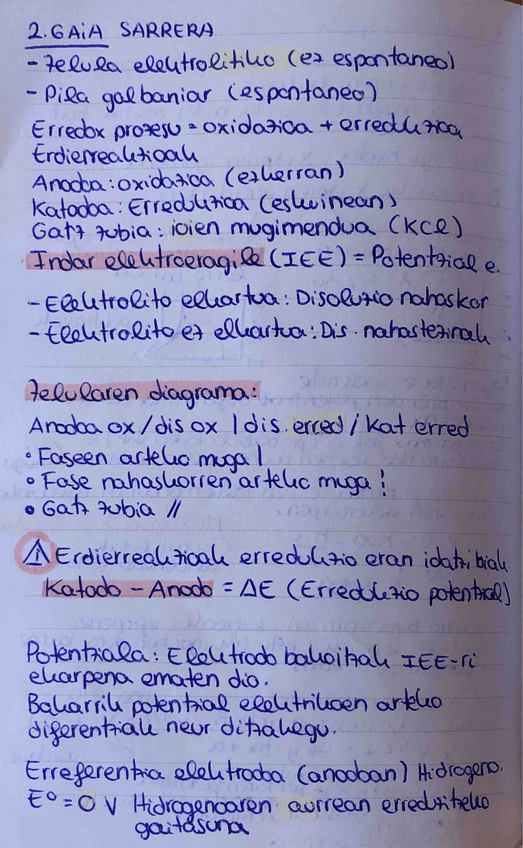 2. GAIA SARRERA
- Zelula elektrolitiko (ez espontaneo)
- Pila galbaniar (espontaneo)
Erredox prozesu = oxidazioa + erredukzioa
Erdierreakzioak
Anodoa: oxidazioa (ezkerran)
Katodoa: Erredukzioa (eskuinean)
Gatz zubia: ioien mugimendua (KCl)
Indar elektroeragile (IEE) = Potentzial e.
- Elektrolito elkartua: Disoluzio nahaskor
- Elektrolito ez elkartua: Dis. nahastezinak
Zelularen diagrama:
Anodoa ox / dis ox | dis. erred / Kat erred
• Faseen arteko muga |
• Fase nahaskorren arteko muga ¦
• Gatz zubia //
⚠ Erdierreakzioak erredukzio eran idatzi biak
Katodo - Anodo = ΔE (Erredukzio potentzial)
Potentziala: Elektrodo bakoitzak IEE-ri
ekarpena ematen dio.
Bakarrik potentzial elektrikoen arteko
diferentziak neur ditzakegu.
Erreferentzia elektrodoa (anodoan) Hidrogeno.
E° = 0 V Hidrogenoaren aurrean erreduzitzeko
gaitasuna